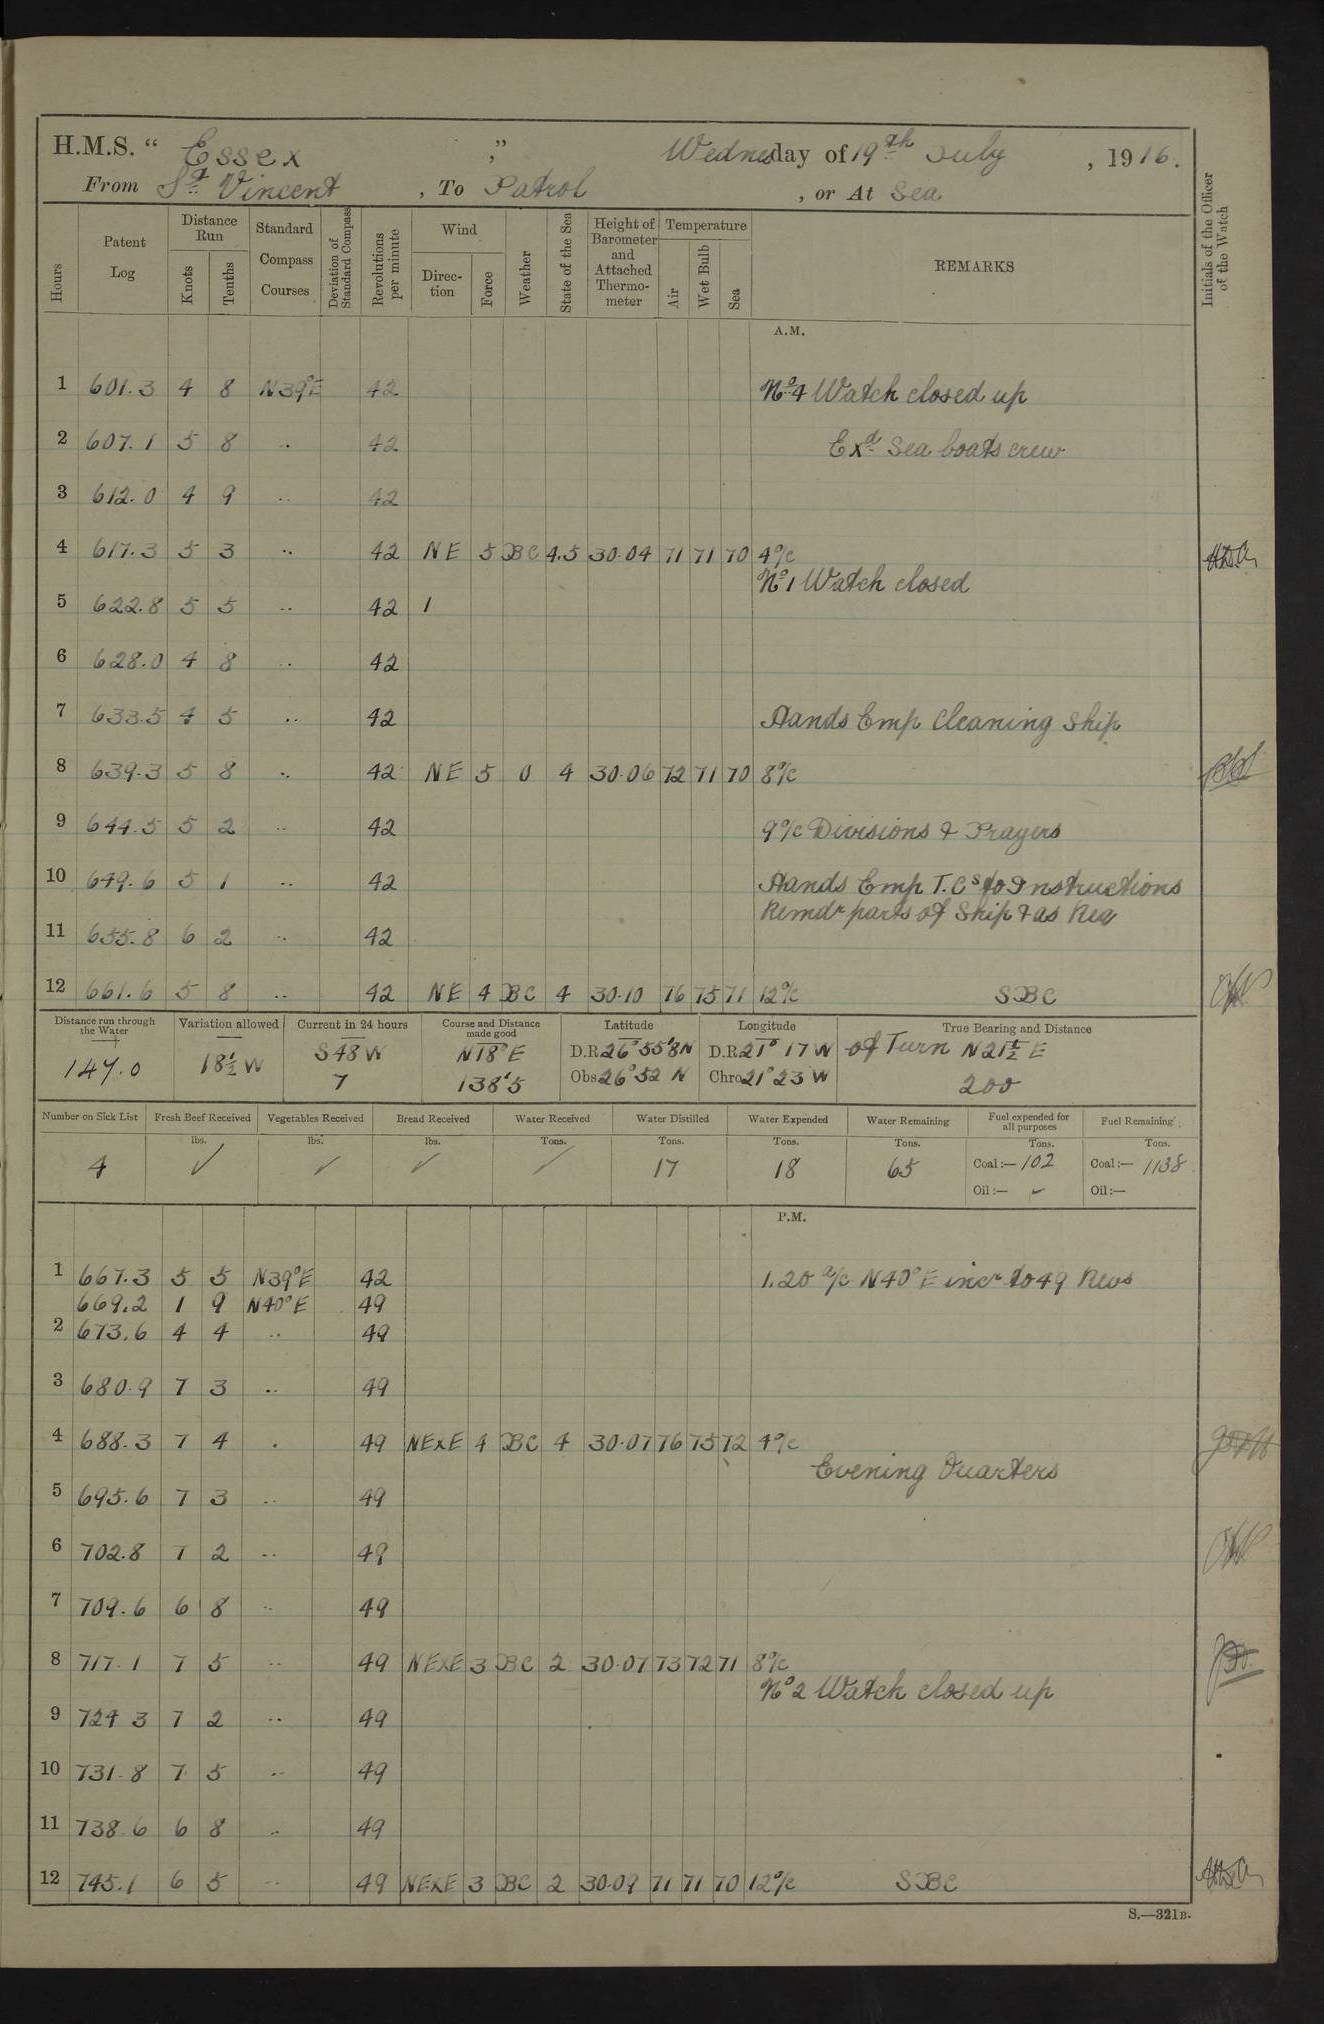 H.M.S. “ Essex ,” Wednesday of 19th July , 1916.
From St Vincent , To Patrol , or At Sea
Hours Patent Log Distance Run Knots Tenths Standard Compass Courses Deviation of Standard Compass Revolutions per minute Wind Direc-tion Force Weather State of the Sea Height of Barometer and Attached Thermo-meter Temperature Air Wet Bulb Sea REMARKS Initials of the Officer of the Watch
A.M.
1 601.3 4 8 N39°E 42 No 4 Watch closed up
2 607.1 5 8 .. 42 Exd Sea boats crew
3 612.0 4 9 .. 42
4 617.3 5 3 .. 42 NE 5 BC 4.5 30.04 71 71 70 4 o/c
No 1 Watch closed
5 622.8 5 5 .. 42 1
6 628.0 4 8 .. 42
7 633.5 4 5 .. 42 Hands Emp Cleaning Ship
8 639.3 5 8 .. 42 NE 5 0 4 30.06 72 71 70 8 o/c
9 644.5 5 2 .. 42 9 o/c Divisions & Prayers
10 649.6 5 1 .. 42 Hands Emp T.Cs to Instructions
Remdr parts of Ship & as Req
11 655.8 6 2 .. 42
12 661.6 5 8 .. 42 NE 4 BC 4 30.10 76 75 71 12 o/c SBC
Distance run through the Water Variation allowed Current in 24 hours Course and Distance made good Latitude Longitude True Bearing and Distance
147.0 18½ W S48W 7 N18°E 138'5 D.R. 26° 55'8N Obs 26° 52 N D.R. 21° 17 W Chro 21° 23 W of Turn N21½E 200
Number on Sick List Fresh Beef Received Vegetables Received Bread Received Water Received Water Distilled Water Expended Water Remaining Fuel expended for all purposes Fuel Remaining
lbs. lbs. lbs. Tons. Tons. Tons. Tons. Tons. Tons.
4 ✓ ✓ ✓ ✓ 17 18 65 Coal:— 102 Coal:— 1138
Oil:— ✓ Oil:—
P.M.
1 667.3 5 5 N39°E 42 1.20 a/c N40°E incr to 49 Revs
669.2 1 9 N40°E 49
2 673.6 4 4 .. 49
3 680.9 7 3 .. 49
4 688.3 7 4 . 49 NExE 4 BC 4 30.07 76 75 72 4 o/c
Evening Quarters
5 695.6 7 3 .. 49
6 702.8 7 2 .. 49
7 709.6 6 8 .. 49
8 717.1 7 5 .. 49 NExE 3 BC 2 30.07 73 72 71 8 o/c
No 2 Watch closed up
9 724 3 7 2 .. 49
10 731.8 7 5 .. 49
11 738.6 6 8 .. 49
12 745.1 6 5 .. 49 NExE 3 BC 2 30.09 71 71 70 12 o/c SBC
S.—321B.